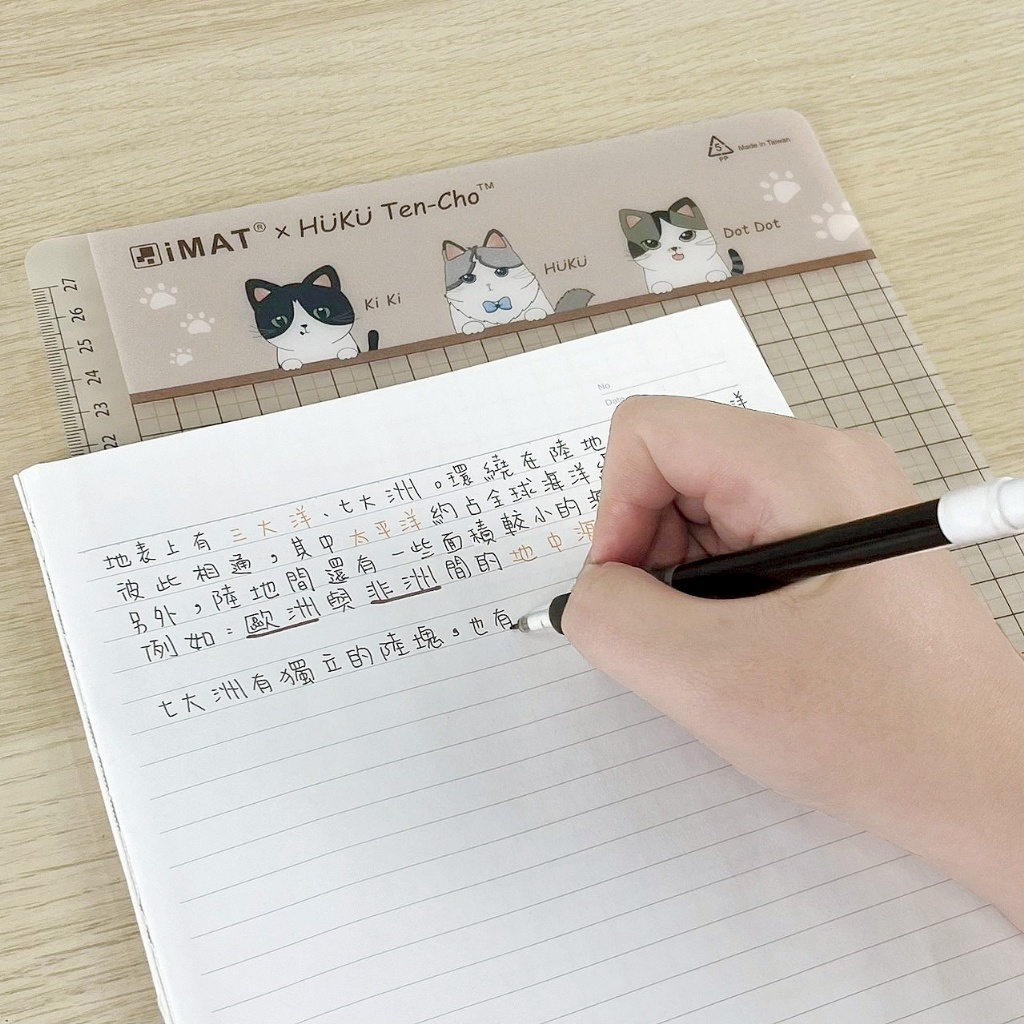 5
PP
Made in Taiwan
iMAT® × HÜKÜ Ten-Cho™
Ki Ki
HÜKÜ
Dot Dot
27
26
25
24
23
22
No
Date
地表上有三大洋、七大洲。環繞在陸地 洋
彼此相通，其中太平洋約占全球海洋
另外，陸地間還有一些面積較小的
例如：歐洲與非洲間的地中
七大洲有獨立的陸塊，也有